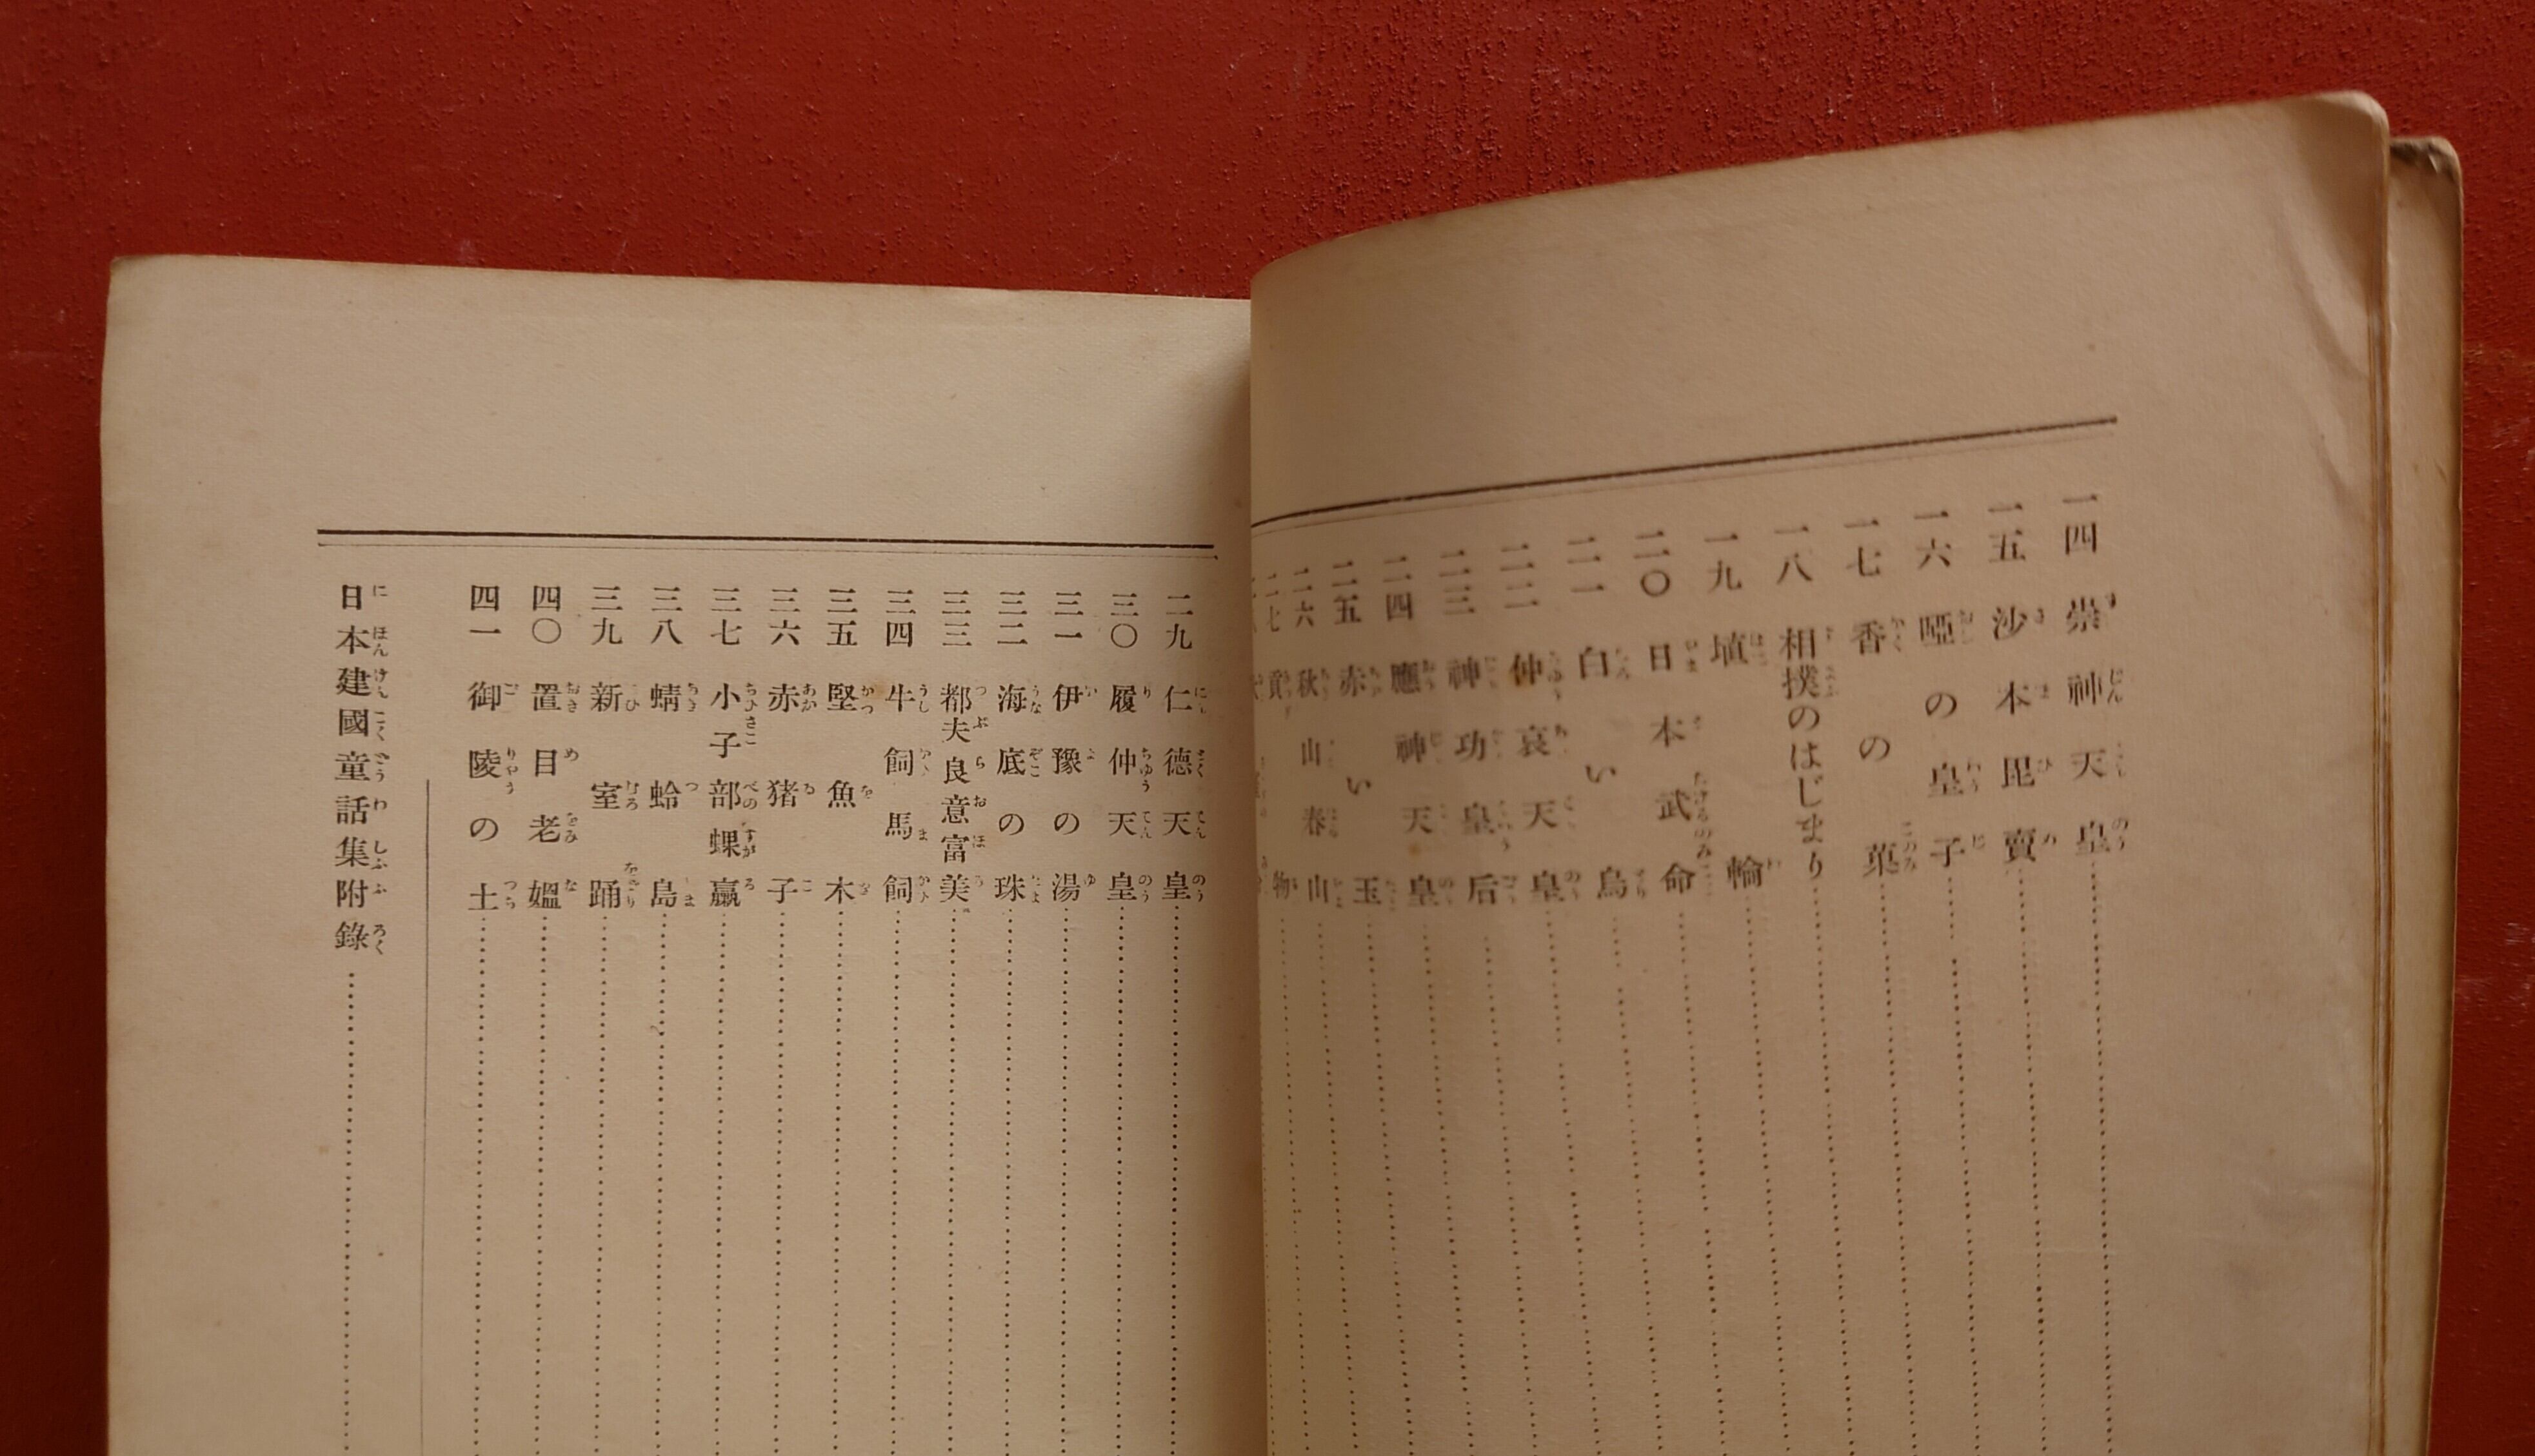 一四 崇神天皇
一五 沙本毘賣
一六 啞の皇子
一七 香の菓
一八 相撲のはじまり
一九 埴輪
二〇 日本武命
二一 白い鳥
二二 仲哀天皇
二三 神功皇后
二四 應神天皇
二五 赤い玉
二六 秋山春山
二七 貢物
二九 仁德天皇
三〇 履仲天皇
三一 伊豫の湯
三二 海底の珠
三三 都夫良意富美
三四 牛飼馬飼
三五 堅魚木
三六 赤猪子
三七 小子部蜾蠃
三八 蜻蛉島
三九 新室踊
四〇 置目老媼
四一 御陵の土
日本建國童話集附錄